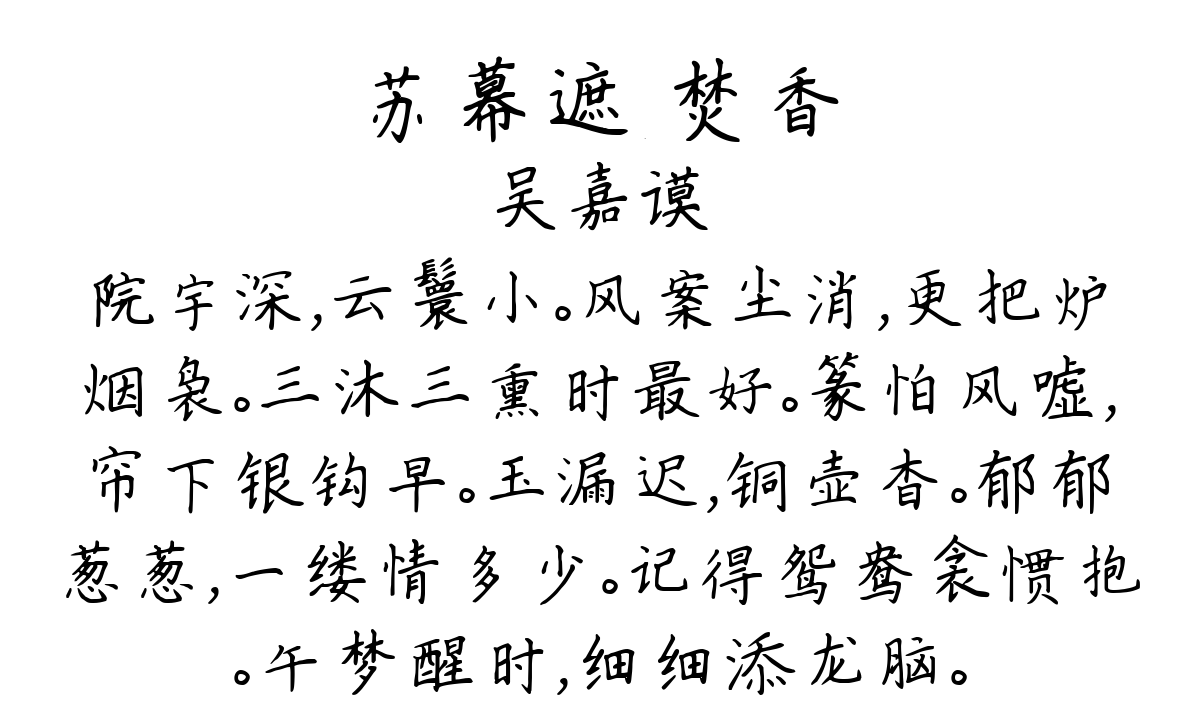 苏幕遮 焚香
吴嘉谟
院宇深,云鬟小。风案尘消,更把炉
烟袅。三沐三熏时最好。篆怕风嘘,
帘下银钩早。玉漏迟,铜壶杳。郁郁
葱葱,一缕情多少。记得鸳鸯衾惯抱
。午梦醒时,细细添龙脑。